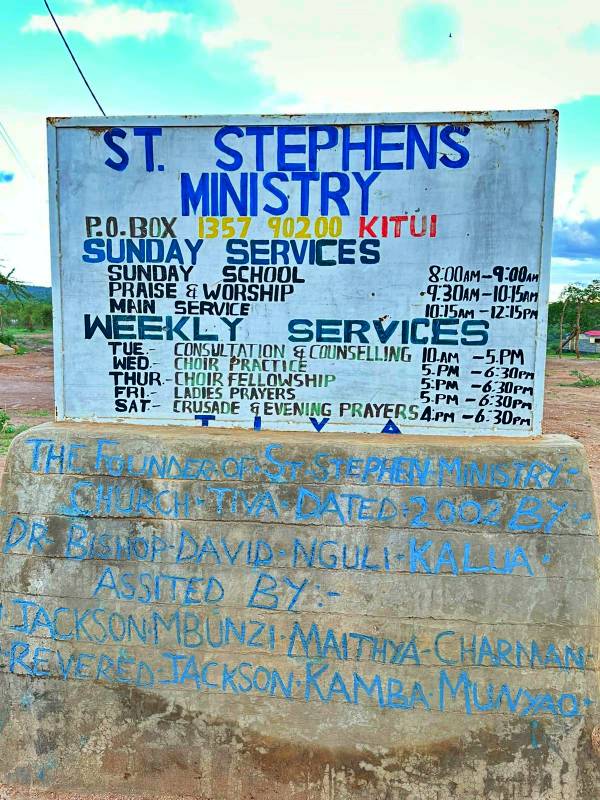 ST. STEPHENS
MINISTRY
P.O.BOX 1357 90200 KITUI
SUNDAY SERVICES
SUNDAY SCHOOL 8:00AM-9:00AM
PRAISE & WORSHIP 9.30AM-10:15AM
MAIN SERVICE 10:15AM-12:15PM
WEEKLY SERVICES
TUE.- CONSULTATION & COUNSELLING 10.AM -5.PM
WED.- CHOIR PRACTICE 5.PM -6:30PM
THUR.- CHOIR FELLOWSHIP 5:PM -6:30PM
FRI.- LADIES PRAYERS 5.PM -6:30PM
SAT.- CRUSADE & EVENING PRAYERS 4:PM-6:30PM
TIVA
THE FOUNDER.OF.ST.STEPHEN.MINISTRY:-
CHURCH.TIVA.DATED:-2002 BY:-
DR.BISHOP.DAVID.NGULI.KALUA.
ASSITED BY:-
JACKSON.MBUNZI.MAITHYA-CHARMAN-
REVERED.JACKSON.KAMBA.MUNYAO.